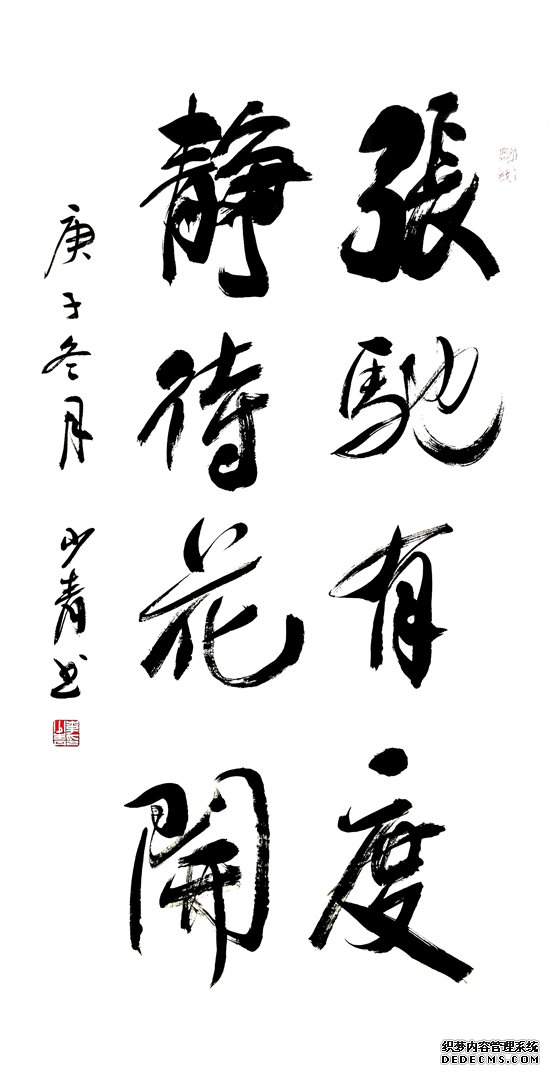 張馳有度
静待花開
庚子冬月 少青书
织梦内容管理系统
DEDECMS.COM